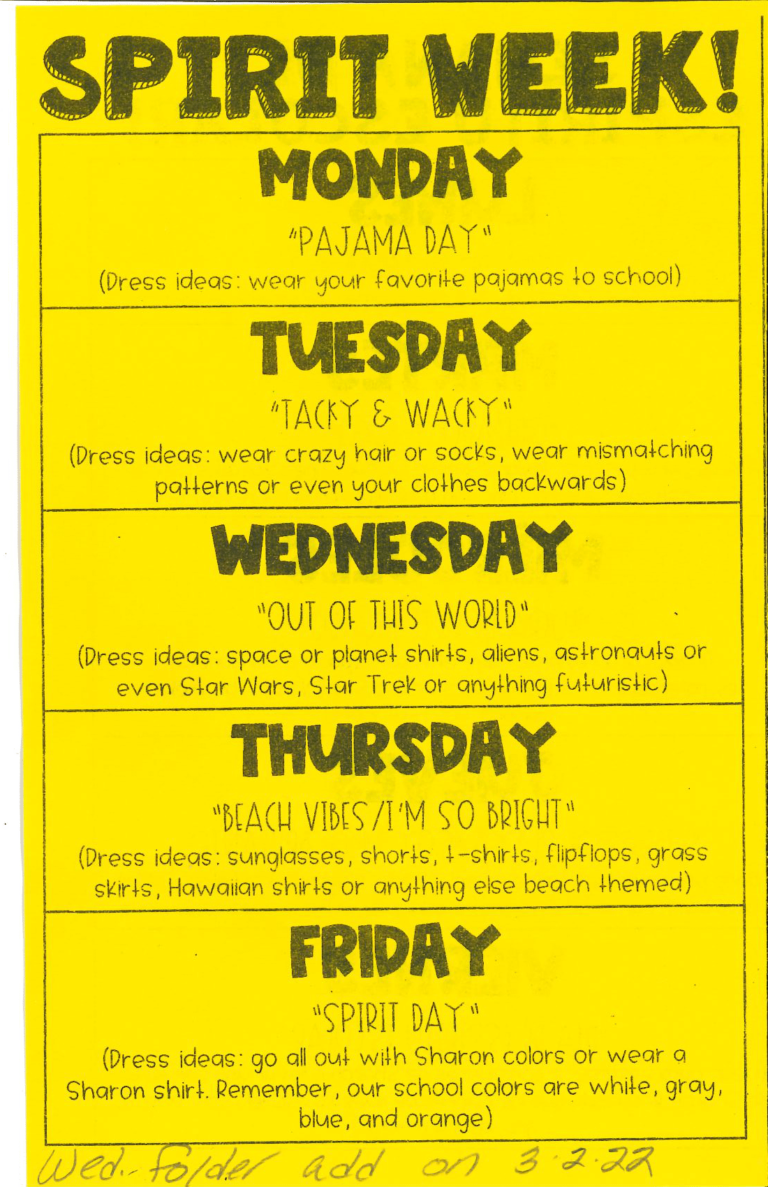 SPIRIT WEEK!
MONDAY
"PAJAMA DAY"
(Dress ideas: wear your favorite pajamas to school)
TUESDAY
"TACKY & WACKY"
(Dress ideas: wear crazy hair or socks, wear mismatching
patterns or even your clothes backwards)
WEDNESDAY
"OUT OF THIS WORLD"
(Dress ideas: space or planet shirts, aliens, astronauts or
even Star Wars, Star Trek or anything futuristic)
THURSDAY
"BEACH VIBES/I'M SO BRIGHT"
(Dress ideas: sunglasses, shorts, t-shirts, flipflops, grass
skirts, Hawaiian shirts or anything else beach themed)
FRIDAY
"SPIRIT DAY"
(Dress ideas: go all out with Sharon colors or wear a
Sharon shirt. Remember, our school colors are white, gray,
blue, and orange)
Wed. folder add on 3.2.22